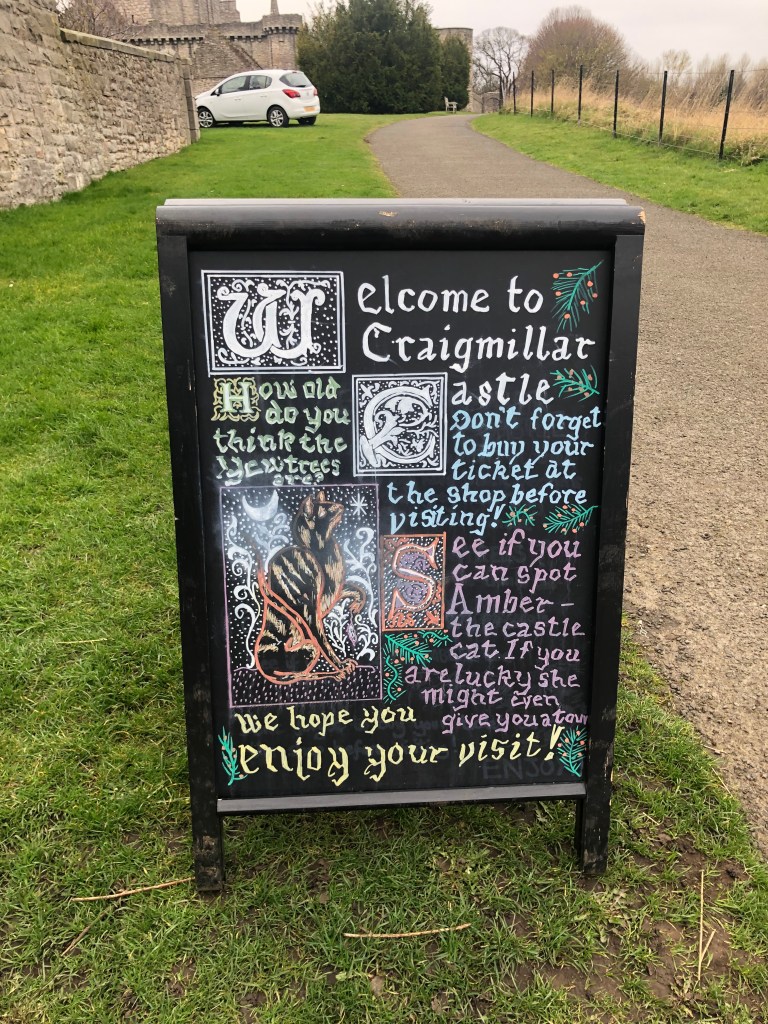 Welcome to
Craigmillar
Castle
How old
do you
think the
Yew trees
are?
Don't forget
to buy your
ticket at
the shop before
visiting!
See if you
can spot
Amber -
the castle
cat. If you
are lucky she
might even
give you a tour
we hope you
enjoy your visit!